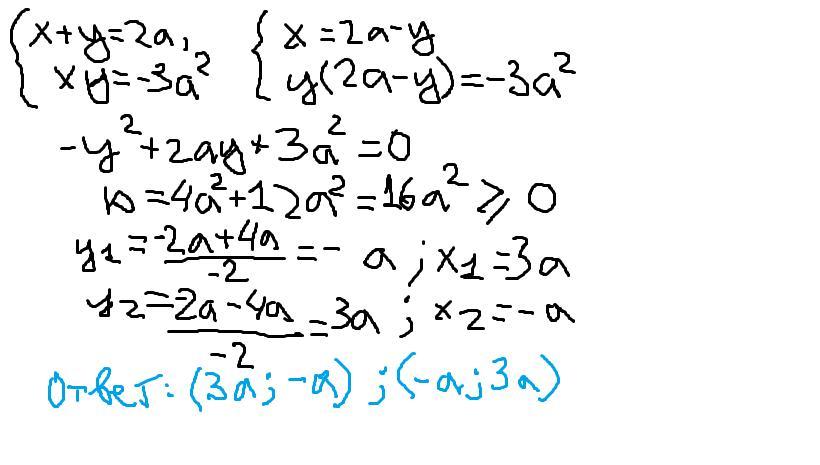 { x+y=2a, { x=2a-y
xy=-3a² y(2a-y)=-3a²
-y²+2ay+3a²=0
D=4a²+12a²=16a² ⩾ 0
y1=(-2a+4a)/-2=-a ; x1=3a
y2=(-2a-4a)/-2=3a ; x2=-a
Ответ: (3a;-a) ;(-a;3a)